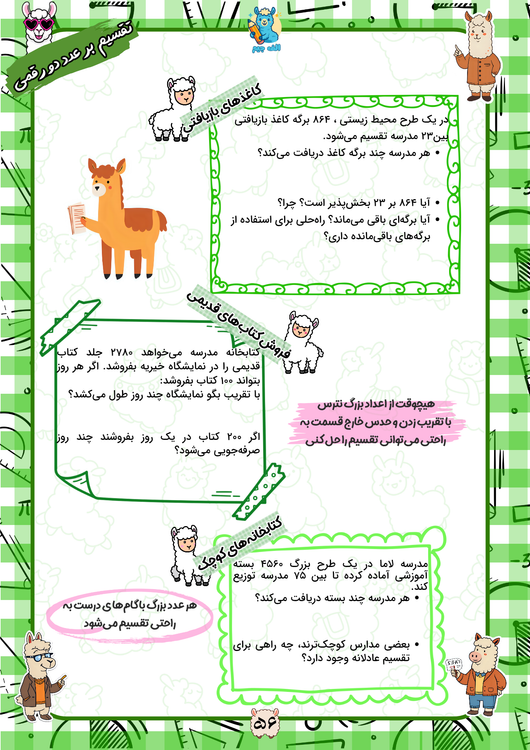 تقسیم بر عدد دو رقمی
کاغذهای بازیافتی
در یک طرح محیط زیستی ، ۸۶۴ برگه کاغذ بازیافتی
بین۲۳ مدرسه تقسیم می‌شود.
• هر مدرسه چند برگه کاغذ دریافت می‌کند؟
• آیا ۸۶۴ بر ۲۳ بخش‌پذیر است؟ چرا؟
• آیا برگه‌ای باقی می‌ماند؟ راه‌حلی برای استفاده از
برگه‌های باقی‌مانده داری؟
فروش کتاب‌های قدیمی
کتابخانه مدرسه می‌خواهد ۲۷۸۰ جلد کتاب
قدیمی را در نمایشگاه خیریه بفروشد. اگر هر روز
بتواند ۱۰۰ کتاب بفروشد:
با تقریب بگو نمایشگاه چند روز طول می‌کشد؟
اگر ۲۰۰ کتاب در یک روز بفروشند چند روز
صرفه‌جویی می‌شود؟
هیچوقت از اعداد بزرگ نترس
با تقریب زدن و حدس خارج قسمت به
راحتی می‌توانی تقسیم را حل کنی
کتابخانه‌های کوچک
مدرسه لاما در یک طرح بزرگ ۴۵۶۰ بسته
آموزشی آماده کرده تا بین ۷۵ مدرسه توزیع
کند.
• هر مدرسه چند بسته دریافت می‌کند؟
• بعضی مدارس کوچک‌ترند، چه راهی برای
تقسیم عادلانه وجود دارد؟
هر عدد بزرگ با گام‌های درست به
راحتی تقسیم می‌شود
۵۶